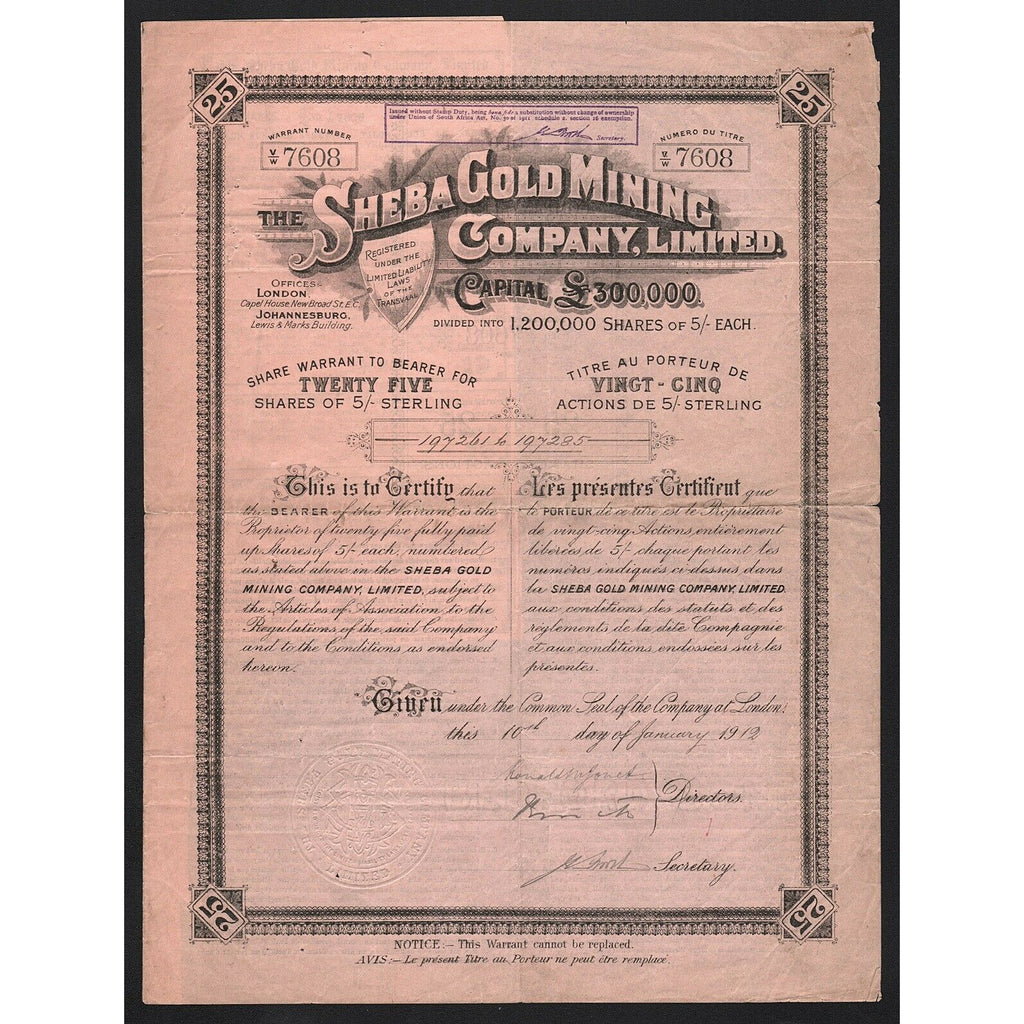 25
25
Issued without Stamp Duty, being bona fide a substitution without change of ownership
under Union of South Africa Act, No. 30 of 1911 schedule 2. section 26 exemption.
Secretary.
WARRANT NUMBER
V/W 7608
NUMERO DU TITRE
V/W 7608
THE SHEBA GOLD MINING
COMPANY, LIMITED.
REGISTERED
UNDER THE
LIMITED LIABILITY
LAWS
OF THE
TRANSVAAL
OFFICES
LONDON,
Capel House New Broad St, E.C.
JOHANNESBURG,
Lewis & Marks Building.
CAPITAL £300,000.
DIVIDED INTO 1,200,000 SHARES OF 5/- EACH.
SHARE WARRANT TO BEARER FOR
TWENTY FIVE
SHARES OF 5/- STERLING
TITRE AU PORTEUR DE
VINGT-CINQ
ACTIONS DE 5/- STERLING
197261 to 197285
This is to Certify that
the BEARER of this Warrant is the
Proprietor of twenty five fully paid
up Shares of 5/- each, numbered
as stated above in the SHEBA GOLD
MINING COMPANY, LIMITED, subject to
the Articles of Association to the
Regulations of the said Company
and to the Conditions as endorsed
hereon.
Les présentes Certifient que
le PORTEUR de ce titre est le Propriétaire
de vingt-cinq Actions entièrement
libérées de 5/- chaque portant les
numéros indiqués ci-dessus dans
la SHEBA GOLD MINING COMPANY, LIMITED,
aux conditions des statuts et des
règlements de la dite Compagnie
et aux conditions endossées sur les
présentes.
Given under the Common Seal of the Company at London,
this 10th day of January 1912
Directors.
Secretary.
LIMITED
25
25
NOTICE:— This Warrant cannot be replaced.
AVIS:— Le présent Titre au Porteur ne peut être remplacé.